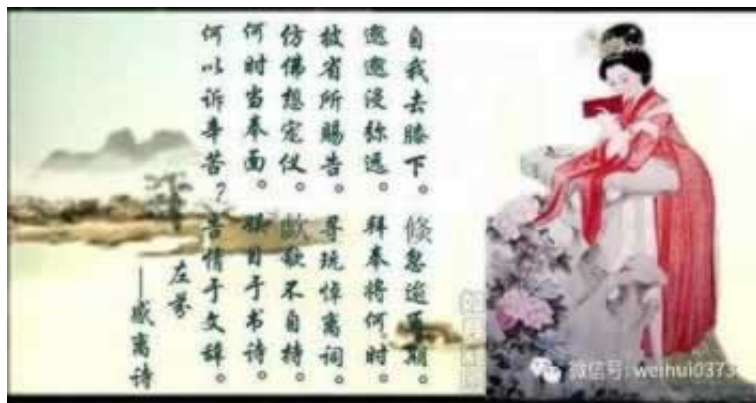 自我去膝下。倏忽逾再期。
邈邈浸弥远。拜奉将何时。
披省所賜告。寻玩悼离词。
仿佛想容仪。歔欷不自持。
何时当奉面。娱目于书诗。
何以诉辛苦?告情于文辞。
左芬
——感离诗
微信号: weihui0373